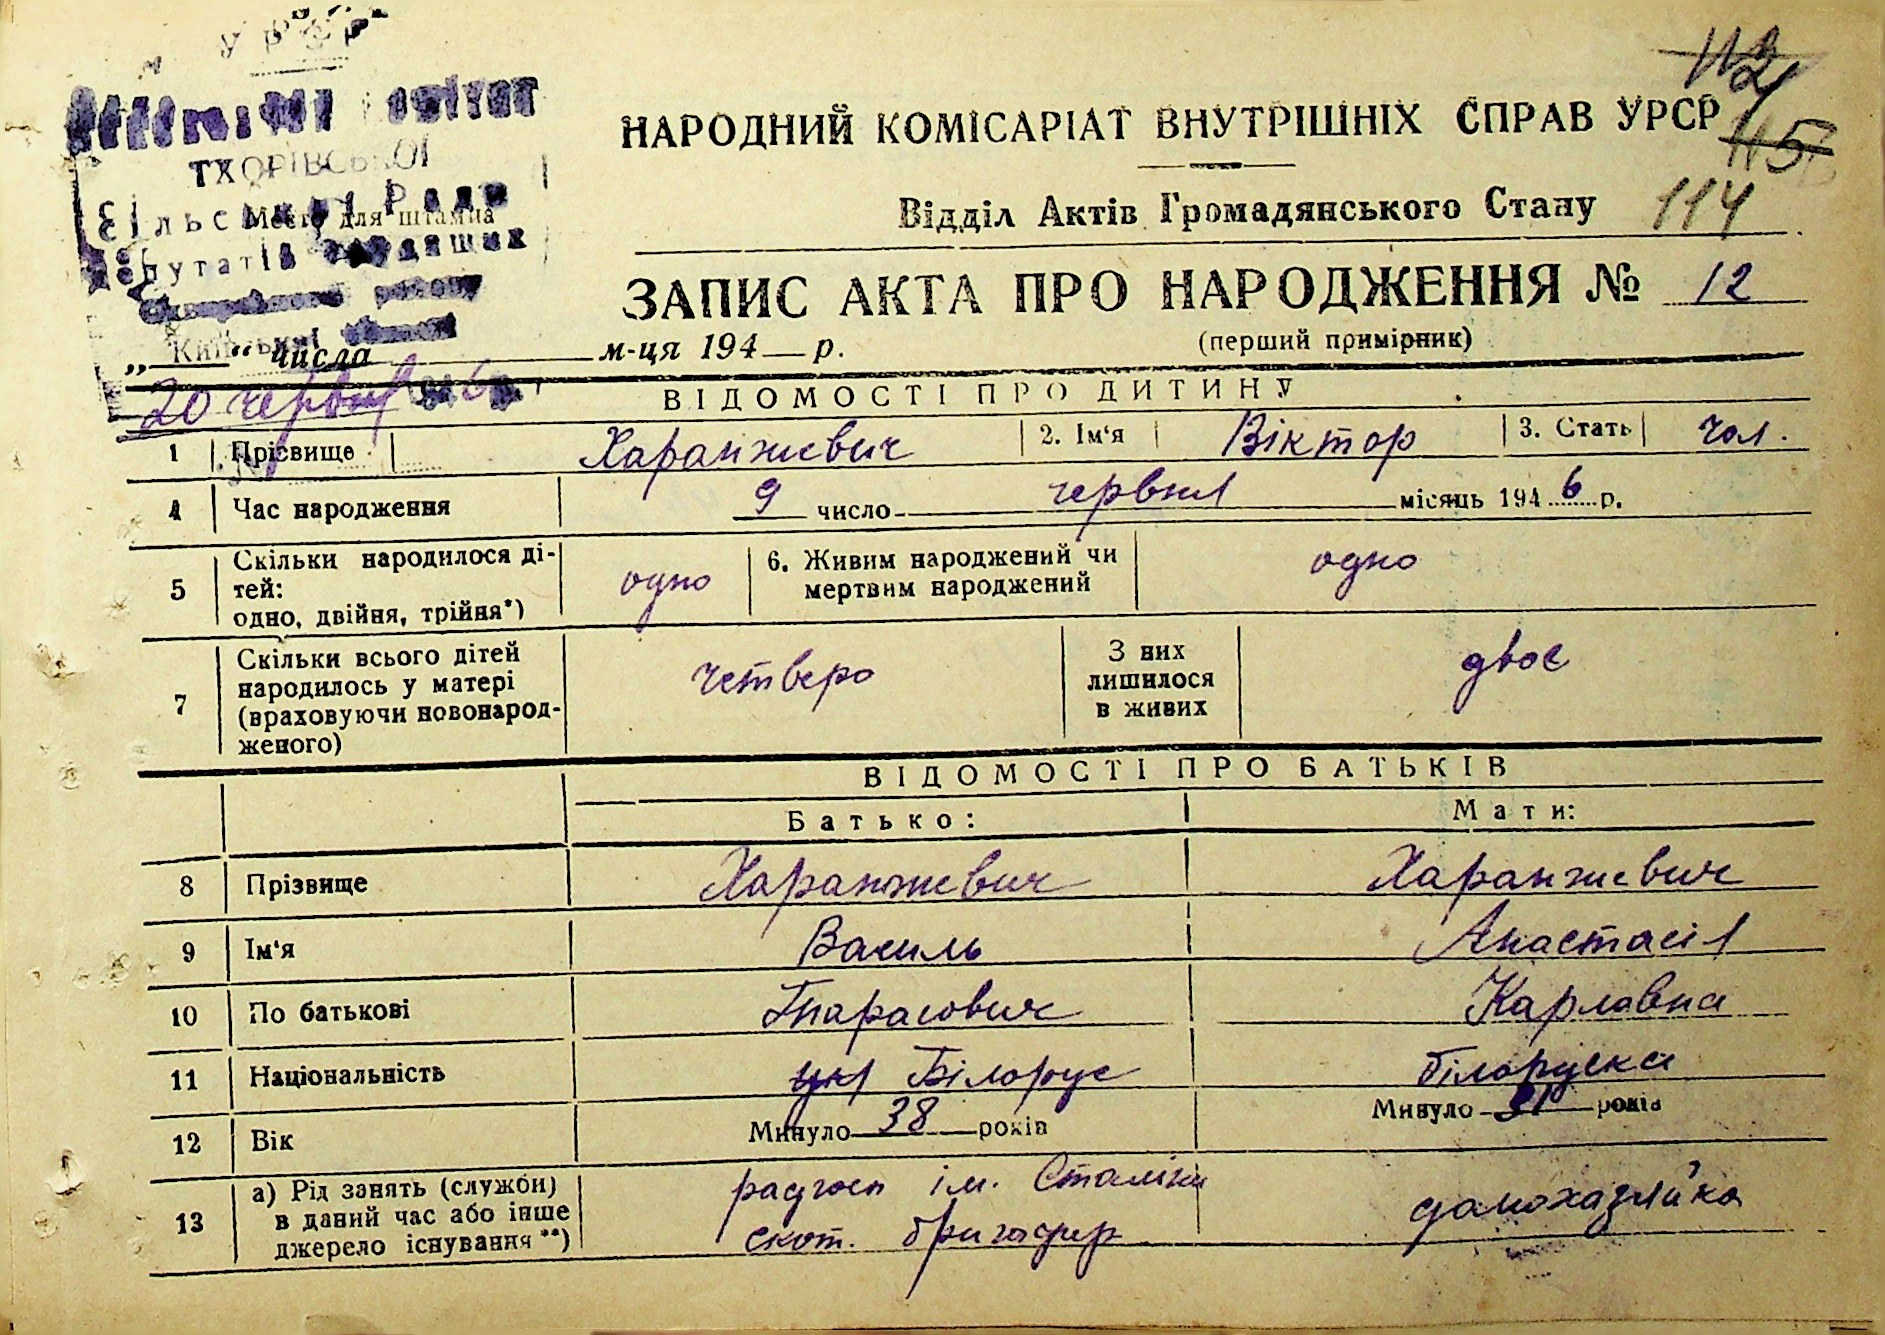 УРСР
ТХОРІВСЬКОЇ
Сільської Ради
Место для штампа
депутатів трудящих
району
Київської
НАРОДНИЙ КОМІСАРІАТ ВНУТРІШНІХ СПРАВ УРСР
112
115
Відділ Актів Громадянського Стану
114
ЗАПИС АКТА ПРО НАРОДЖЕННЯ № 12
(перший примірник)
„ “ числа м-ця 194 р.
20 червня 1946
ВІДОМОСТІ ПРО ДИТИНУ
1 Прізвище Харанжевич 2. Ім‘я Віктор 3. Стать чол.
4 Час народження 9 число червня місяць 1946 р.
5 Скільки народилося ді-
тей:
одно, двійня, трійня*) одно 6. Живим народжений чи
мертвим народжений одно
7 Скільки всього дітей
народилось у матері
(враховуючи новонарод-
женого) четверо З них
лишилося
в живих двоє
ВІДОМОСТІ ПРО БАТЬКІВ
Батько: Мати:
8 Прізвище Харанжевич Харанжевич
9 Ім‘я Василь Анастасія
10 По батькові Тарасович Карлавна
11 Національність укр Білорус білоруска
12 Вік Минуло 38 років Минуло 31 років
13 а) Рід занять (служби)
в даний час або інше
джерело існування **) радгосп ім. Сталіна
скот. бригадир домохазяйка